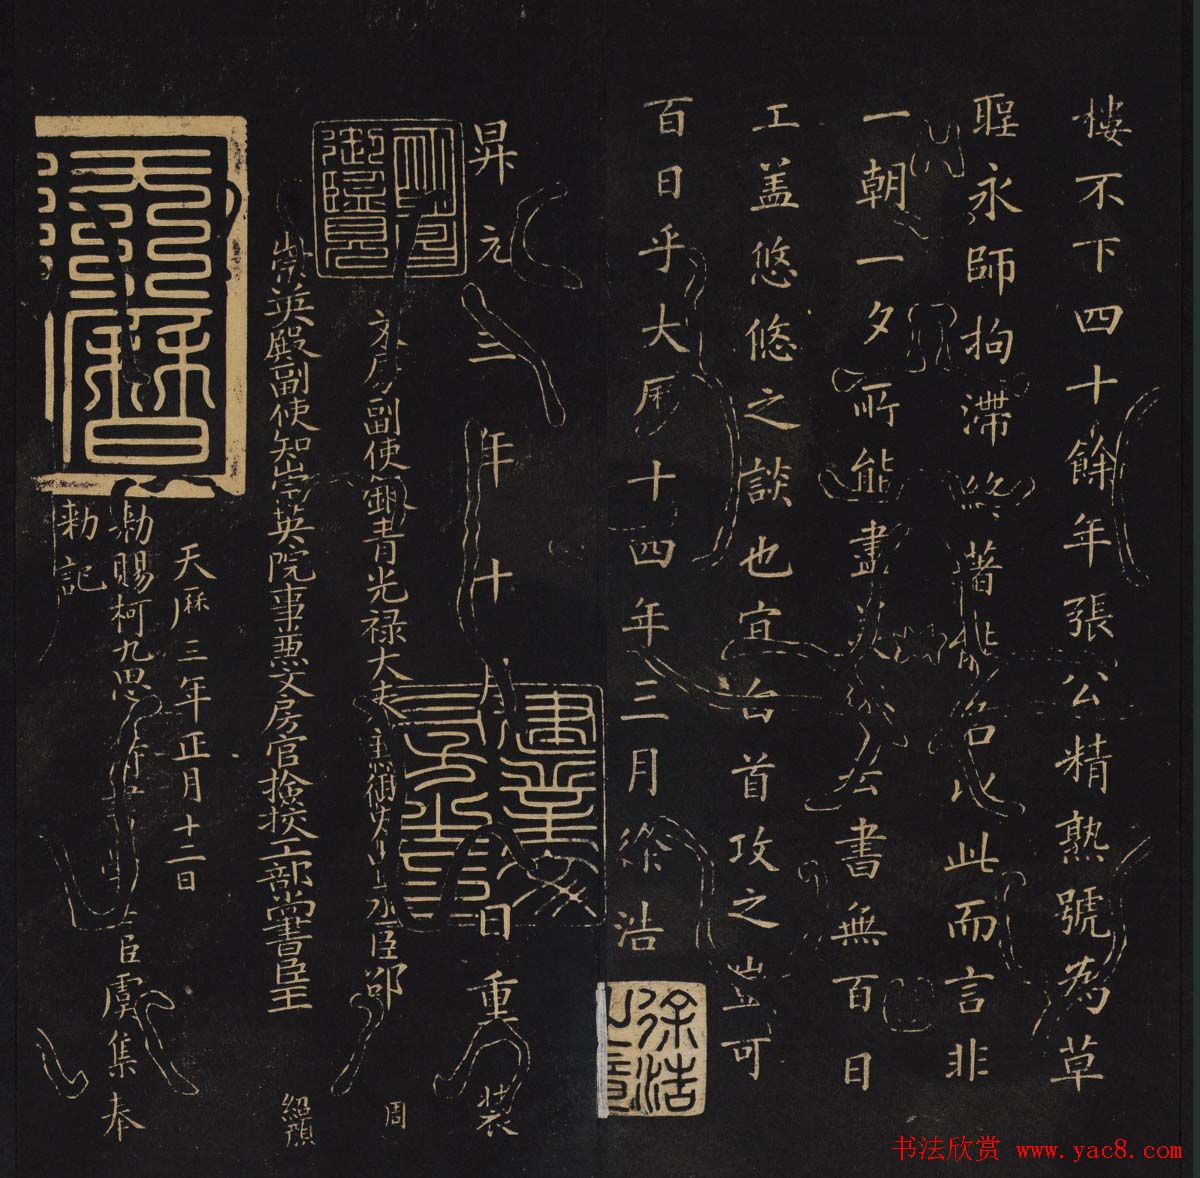 樓不下四十餘年張公精熟號為草
聖永師拘滯終著此而言非
一朝一夕所能盡美 書無百日
工蓋悠悠之談也宜白首攻之豈可
百日乎大厯十四年三月徐浩
徐浩
昇元三年十月日重裝
建業文房之印
御覽
文房副使銀青光祿大夫兼御史中丞臣邵
周
崇英殿副使知崇英院事兼文房官檢挍工部尚書臣王
紹顏
天曆
天厤三年正月十二日
勑賜柯九思 臣虞集奉
勅記
书法欣赏 www.yac8.com